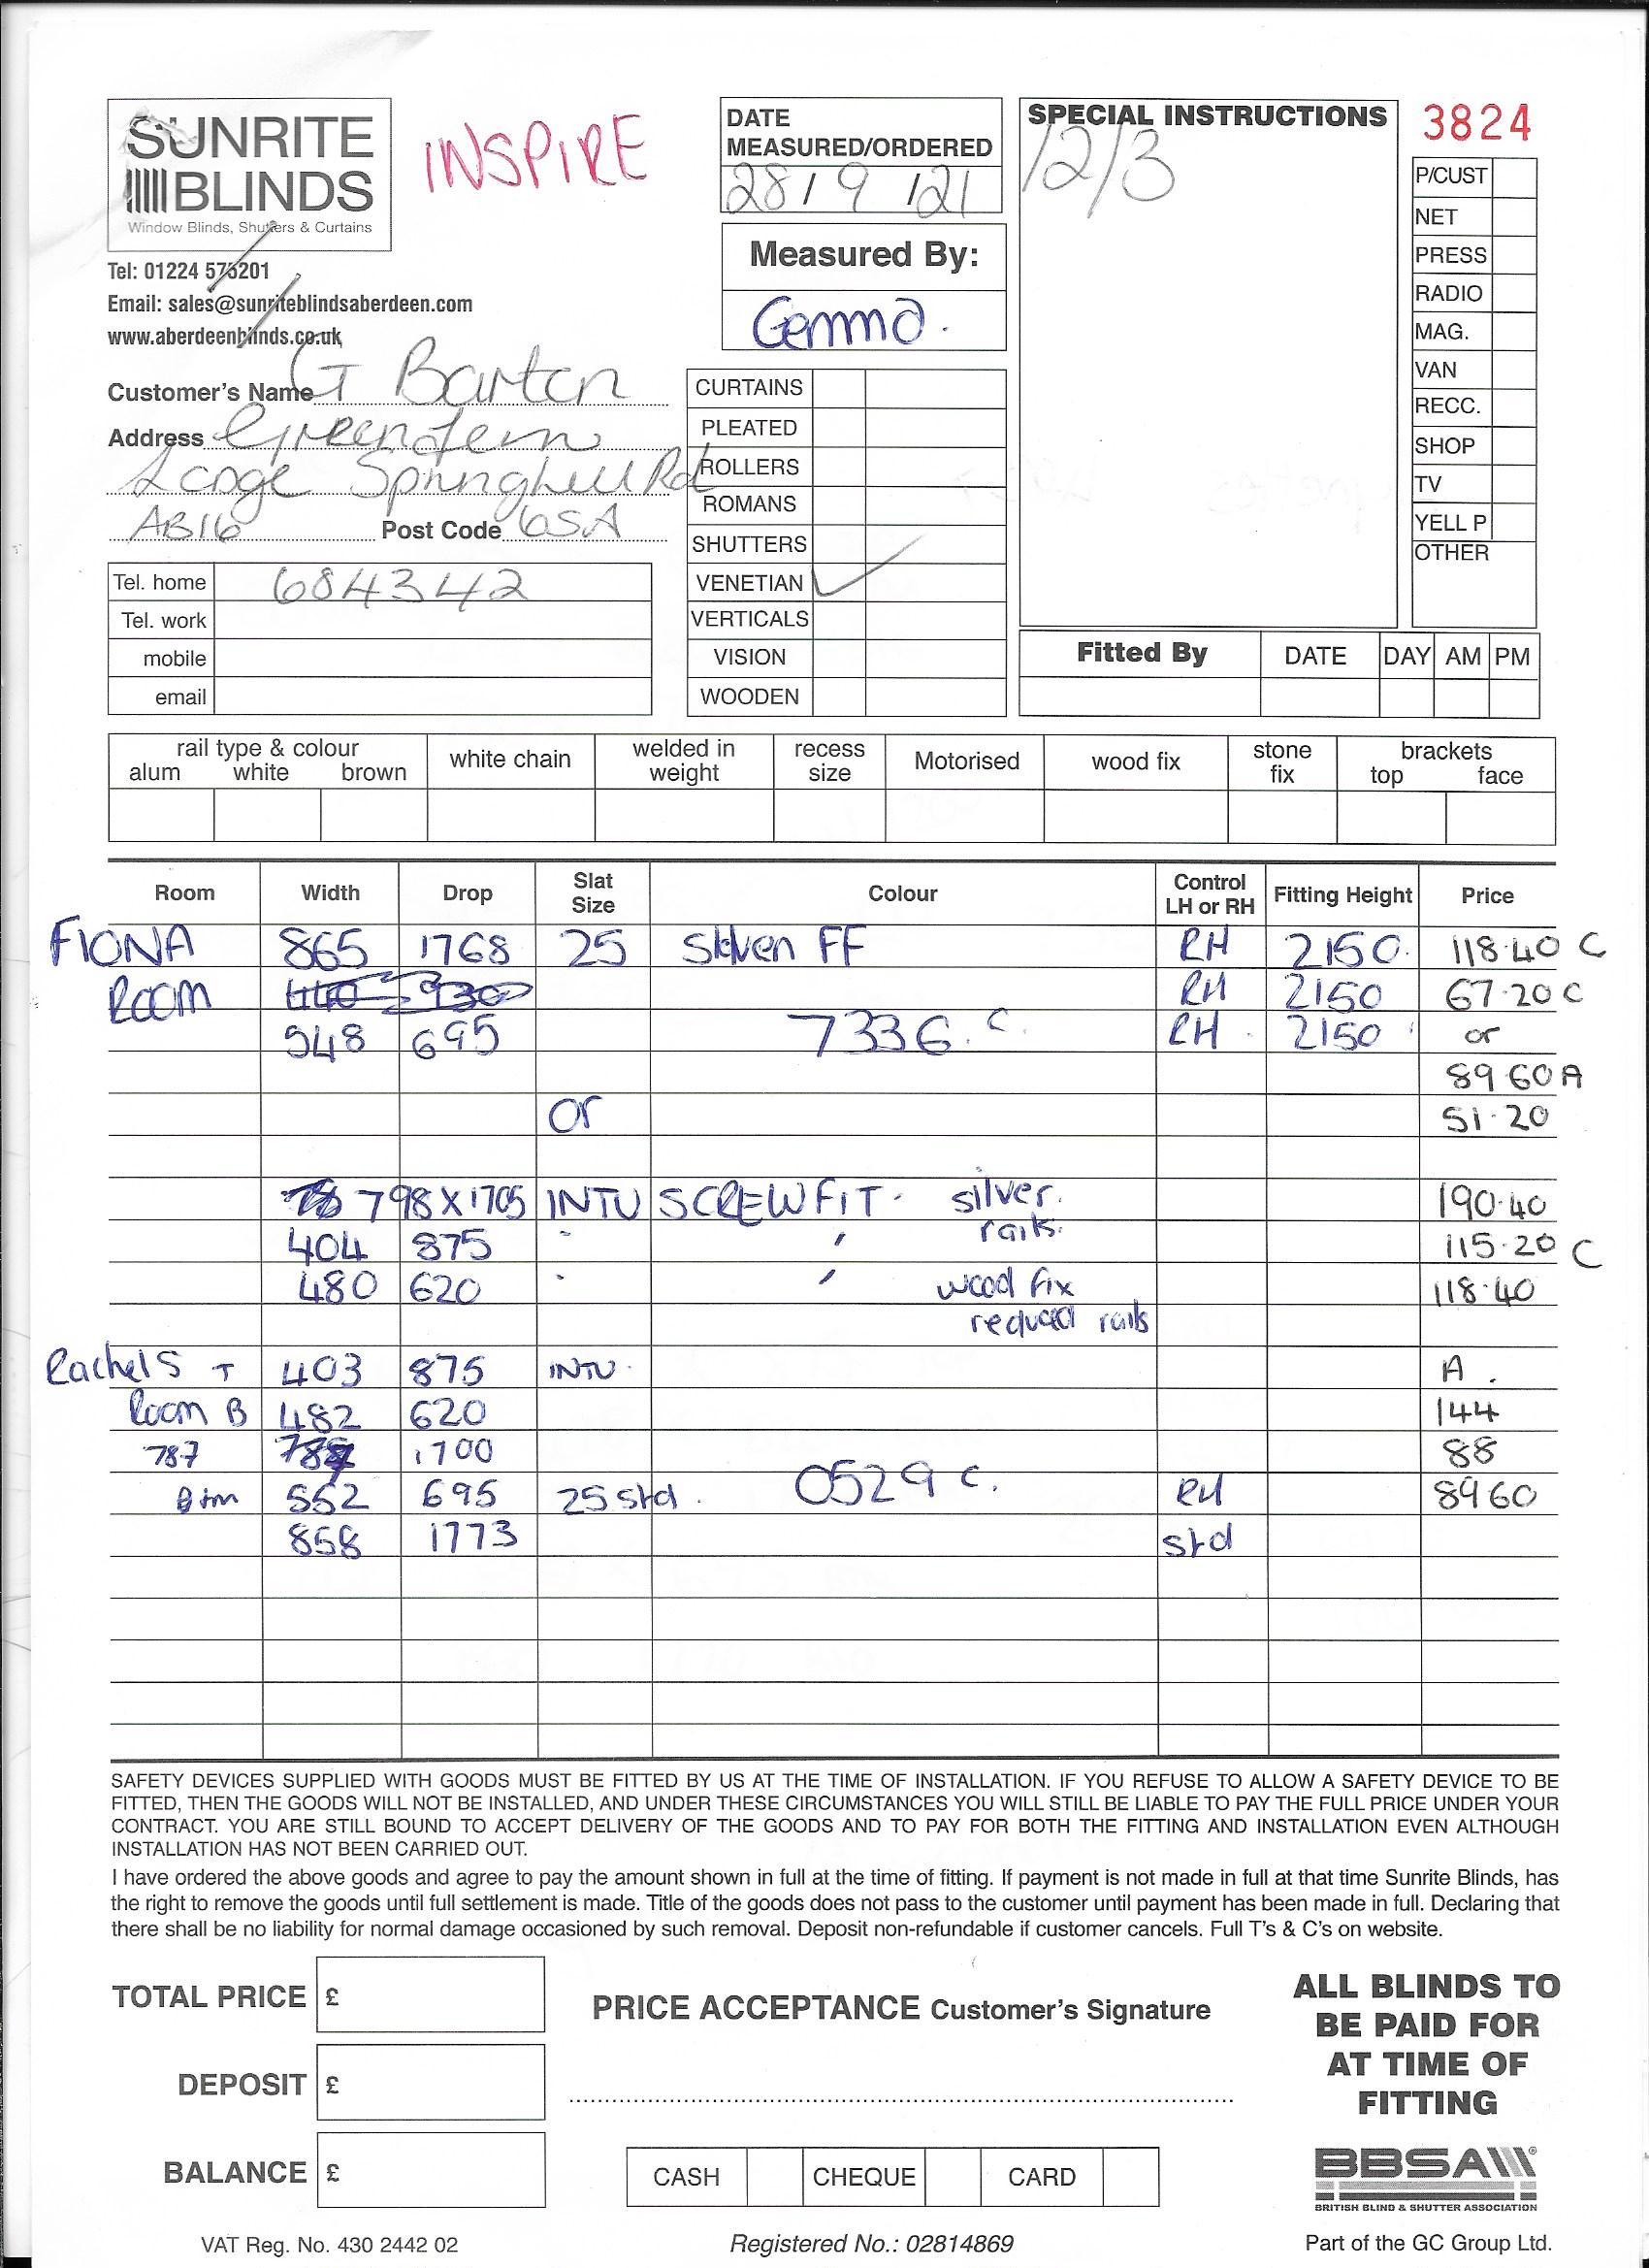 SUNRITE
BLINDS
Window Blinds, Shutters & Curtains
INSPIRE
Tel: 01224 575201
Email: sales@sunriteblindsaberdeen.com
www.aberdeenblinds.co.uk
DATE
MEASURED/ORDERED
28/9/21
Measured By:
Gemma.
SPECIAL INSTRUCTIONS
12/3
3824
P/CUST
NET
PRESS
RADIO
MAG.
VAN
RECC.
SHOP
TV
YELL P
OTHER
Customer's Name G Barton
Address Greenfern
Lodge Springhill Rd
AB16 Post Code 6SA
Tel. home 684342
Tel. work
mobile
email
CURTAINS
PLEATED
ROLLERS
ROMANS
SHUTTERS
VENETIAN ✓
VERTICALS
VISION
WOODEN
Fitted By DATE DAY AM PM
rail type & colour
alum white brown
white chain
welded in weight
recess size
Motorised
wood fix
stone fix
brackets
top face
Room Width Drop Slat Size Colour Control LH or RH Fitting Height Price
FIONA 865 1768 25 FF RH 2150. 118.40 C
ROOM 440 930 RH 2150 67.20 C
548 695 7336. c. RH 2150 or
89.60 A
or 51.20
798 X 1705 INTU SCREWFIT. silver 190.40
rails.
404 875 " " 115.20 C
480 620 " " wood fix 118.40
reduced rails
Rachels T 403 875 INTU. A.
Room B 482 620 144
787 787 1700 88
552 695 25 std. 0529 c. RH 89 60
858 1773 std
SAFETY DEVICES SUPPLIED WITH GOODS MUST BE FITTED BY US AT THE TIME OF INSTALLATION. IF YOU REFUSE TO ALLOW A SAFETY DEVICE TO BE
FITTED, THEN THE GOODS WILL NOT BE INSTALLED, AND UNDER THESE CIRCUMSTANCES YOU WILL STILL BE LIABLE TO PAY THE FULL PRICE UNDER YOUR
CONTRACT. YOU ARE STILL BOUND TO ACCEPT DELIVERY OF THE GOODS AND TO PAY FOR BOTH THE FITTING AND INSTALLATION EVEN ALTHOUGH
INSTALLATION HAS NOT BEEN CARRIED OUT.
I have ordered the above goods and agree to pay the amount shown in full at the time of fitting. If payment is not made in full at that time Sunrite Blinds, has
the right to remove the goods until full settlement is made. Title of the goods does not pass to the customer until payment has been made in full. Declaring that
there shall be no liability for normal damage occasioned by such removal. Deposit non-refundable if customer cancels. Full T's & C's on website.
TOTAL PRICE £
DEPOSIT £
BALANCE £
PRICE ACCEPTANCE Customer's Signature
CASH CHEQUE CARD
ALL BLINDS TO
BE PAID FOR
AT TIME OF
FITTING
BBSA
BRITISH BLIND & SHUTTER ASSOCIATION
VAT Reg. No. 430 2442 02
Registered No.: 02814869
Part of the GC Group Ltd.